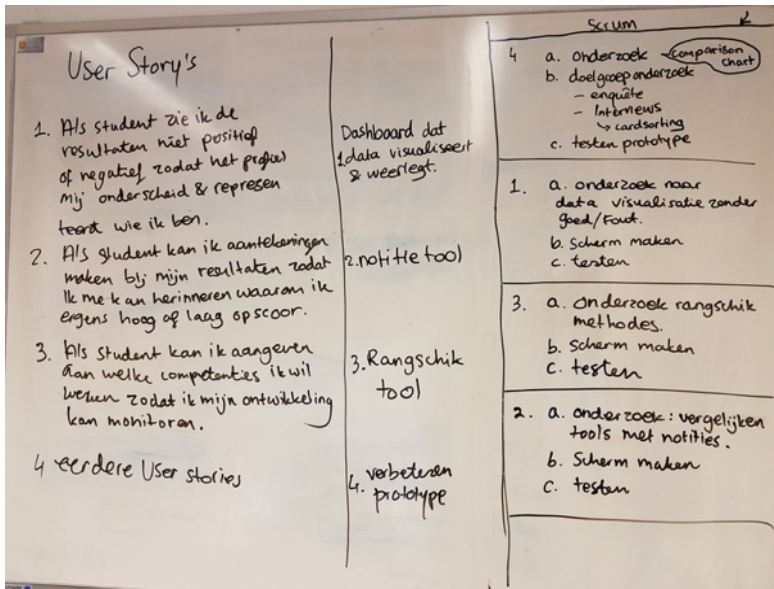 User Story's
1. Als student zie ik de
resultaten niet positief
of negatief zodat het profiel
mij onderscheid & represen
teerd wie ik ben.
2. Als student kan ik aantekeningen
maken bij mijn resultaten zodat
Ik me kan herinneren waarom ik
ergens hoog of laag op scoor.
3. Als student kan ik aangeven
aan welke competenties ik wil
werken zodat ik mijn ontwikkeling
kan monitoren.
4 eerdere User stories
Dashboard dat
1. data visualiseert
& weerlegt.
2. notitie tool
3. Rangschik
tool
4. verbeteren
prototype
Scrum
4 a. onderzoek comparison
chart
b. doelgroep onderzoek
- enquête
- Interviews
↳ cardsorting
c. testen prototype
1. a. onderzoek naar
data visualisatie zonder
goed/Fout.
b. scherm maken
c. testen
3. a. onderzoek rangschik
methodes.
b. scherm maken
c. testen
2. a. onderzoek: vergelijken
tools met notities.
b. Scherm maken
c. testen